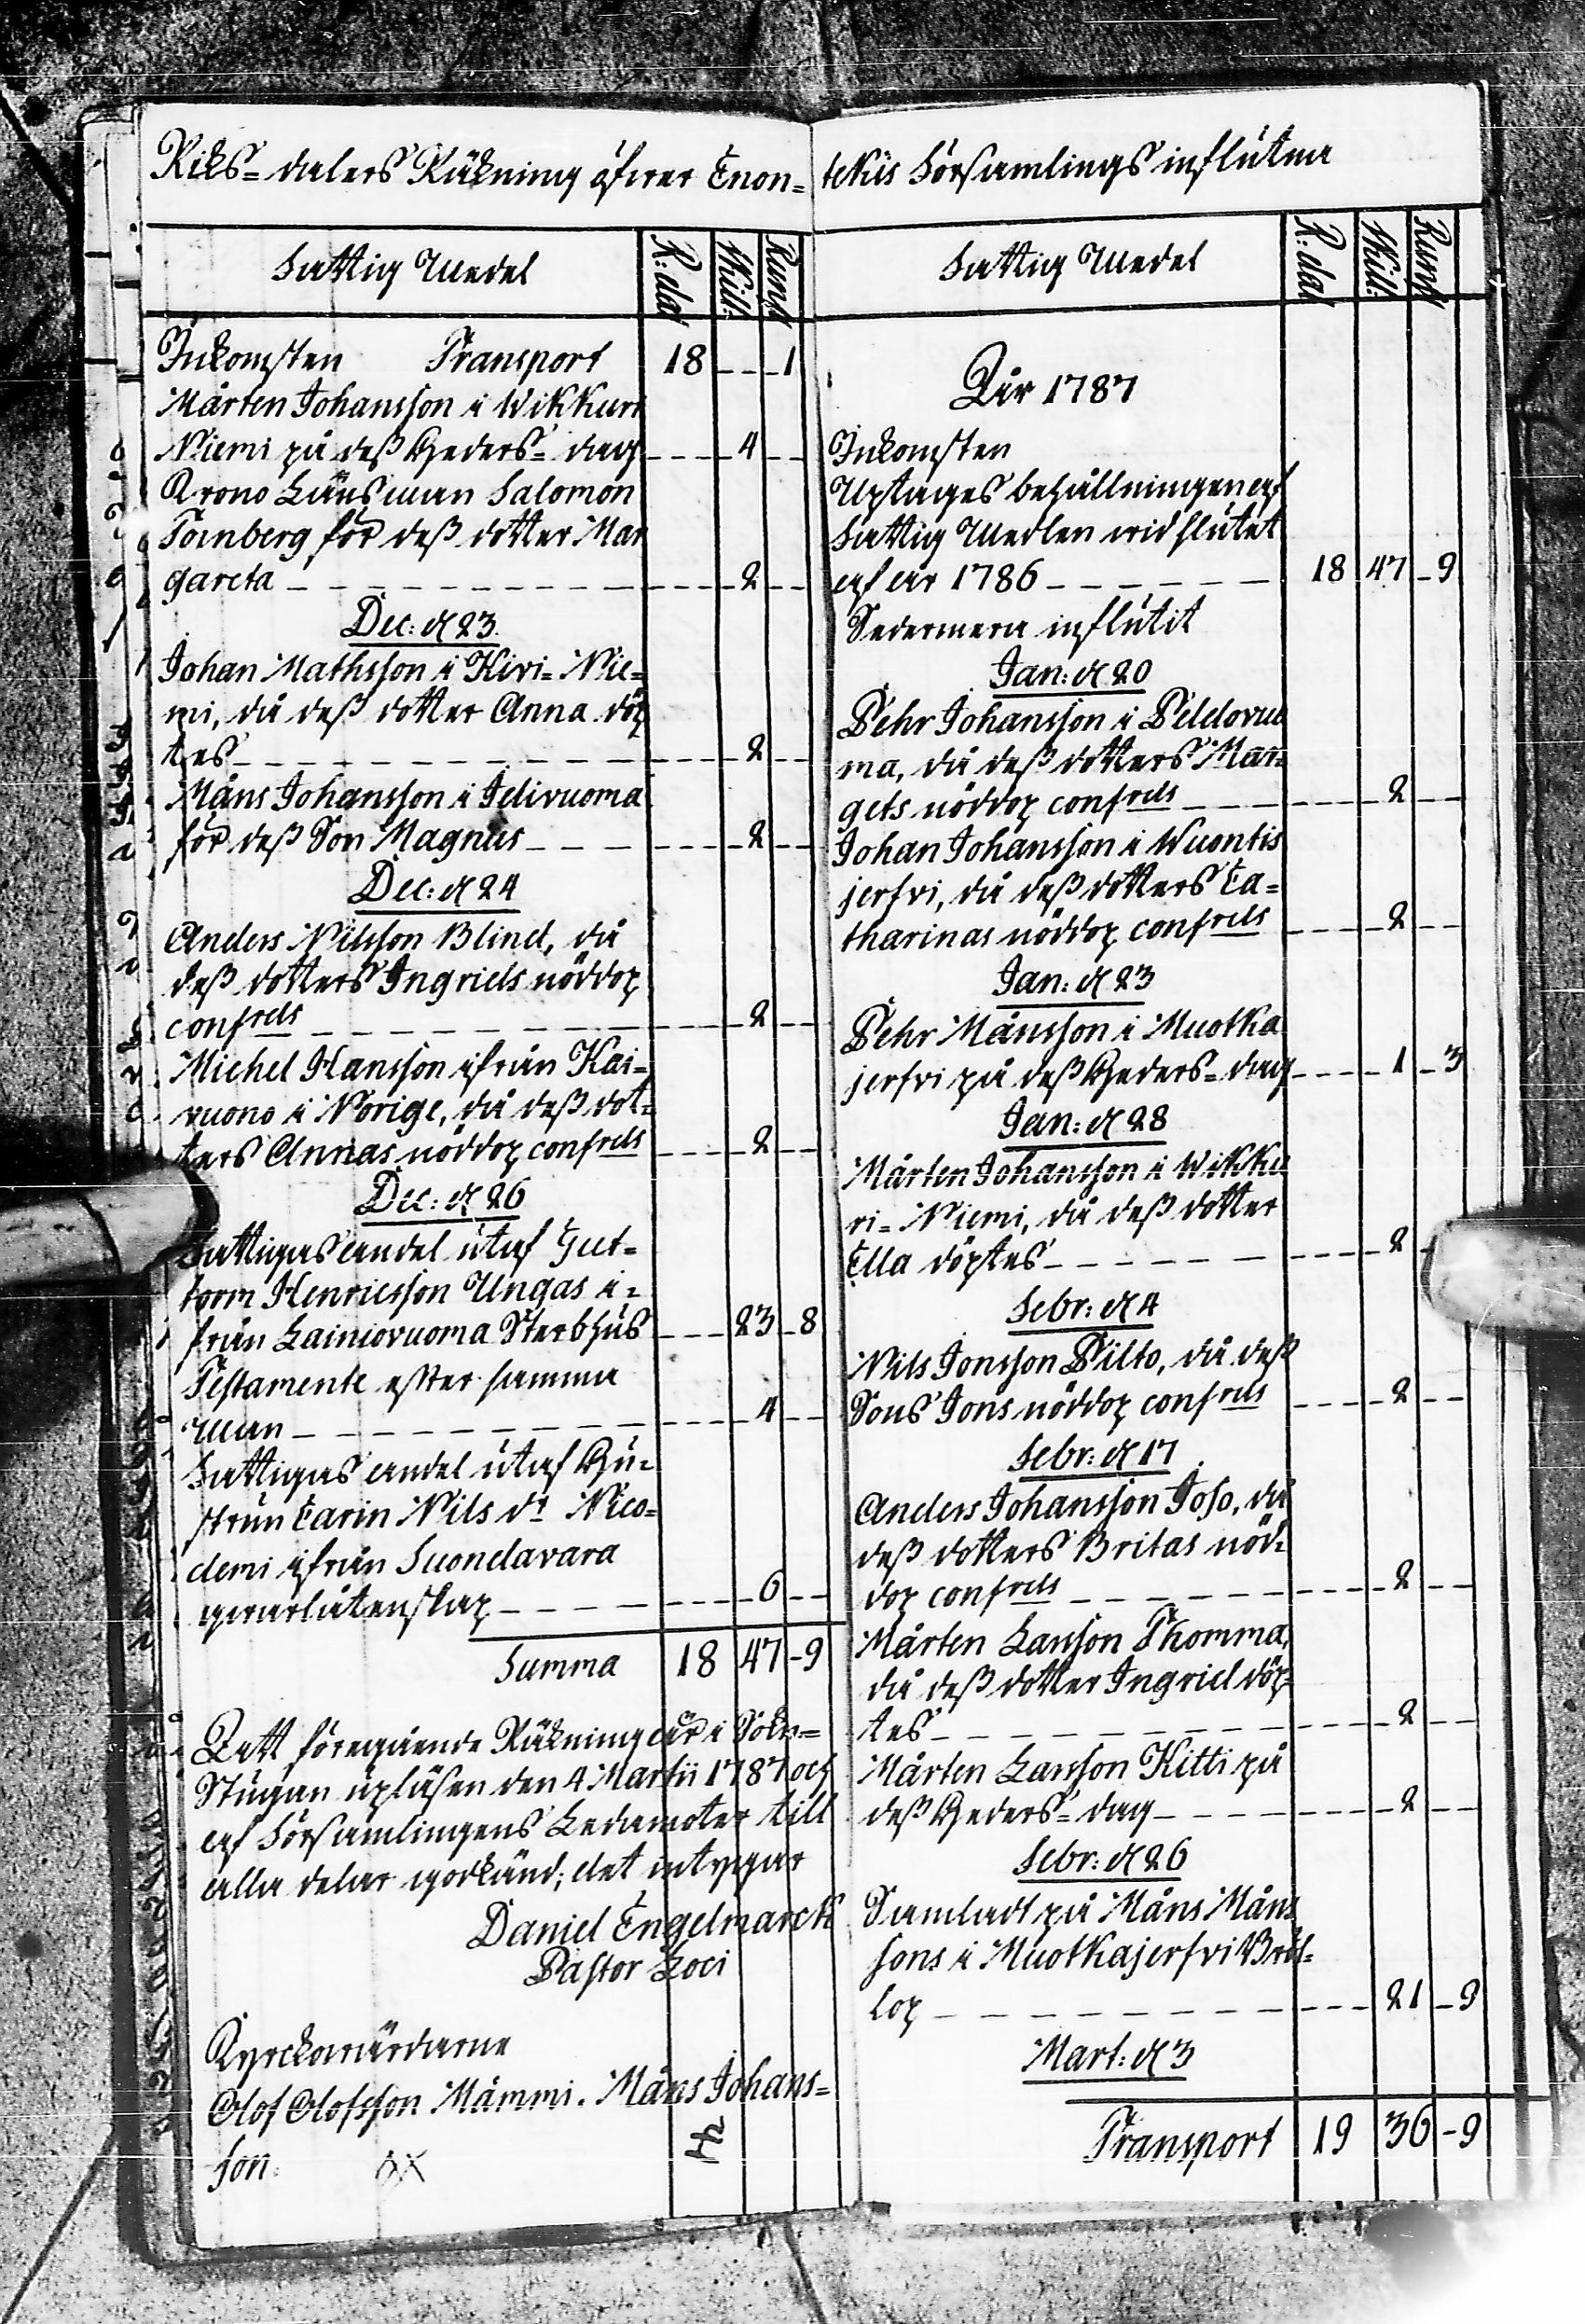 Riks-dalers Räkning öfwer Enon-tekis Församlings influtna
Fattig Medel R:dal Skill: Runst
Inkomsten Transport 18 - - - 1
Mårten Johansson i Wikkuri
Niemi på deß Heders-dag - - - 4 - -
Krono Länsman Salomon
Tornberg för deß dotter Mar
gareta - - - 2 - -
Dec: d 23.
Johan Mathsson i Kivi-Nie-
mi, då deß dotter Anna döp
tes - - - 2 - -
Måns Johansson i Idivuoma
för deß Son Magnus - - - 2 - -
Dec: d 24
Anders Nilsson Blind, då
deß dotters Ingrids nöddop
confrds - - - 2 - -
Michel Hansson ifrån Kai-
vuono i Norige, då deß dot-
ters Annas nöddop confrds - - - 2 - -
Dec: d 26
Fattigas andel utaf Gut-
torm Henricsson Ungas i-
från Lainiovuoma Sterbhus - - - 23 - 8
Testamente efter samma
man - - - 4 - -
Fattigas andel utaf Hu-
strun Carin Nils dr Nico-
demi ifrån Suondavara
qwarlåtenskap - - - 6 - -
Summa 18 47 - 9
Att föregående Räkning är i Sokn-
Stugan upläsen den 4 Martii 1787 och
af Församlingens Ledamoter till
alla delar godkänd; det intygar
Daniel Engelmarck
Pastor Loci
Kyrckowärdarne
Olof Olofsson Mämmi. Måns Johans-
son.
Fattig Medel R:dal Skill: Runst
År 1787
Inkomsten
Uptages behållningen af
Fattig Medlen wid slutet
af år 1786 - - - 18 47 - 9
Sedermera influtit
Jan: d 20
Pehr Johansson i Peldovuo
ma, då deß dotters Mar-
gets nöddop confrds - - - 2 - -
Johan Johansson i Wuontis
jerfvi, då deß dotters Ca-
tharinas nöddop confrds - - - 2 - -
Jan: d 23
Pehr Månsson i Muotka
jerfvi på deß Heders-dag - - - 1 - 3
Jan: d 28
Mårten Johansson i Wikku
ri-Niemi, då deß dotter
Ella döptes - - - 2 -
Febr: d 4
Nils Jonsson Pilto, då deß
Sons Jons nöddop confrds - - - 2 - -
Febr: d 17
Anders Johansson Joso, då
deß dotters Britas nöd-
dop confrds - - - 2 - -
Mårten Larsson Thomma,
då deß dotter Ingrid döp-
tes - - - 2 - -
Mårten Larsson Kitti på
deß Heders-dag - - - 2 - -
Febr: d 26
Samladt på Måns Måns
sons i Muotkajerfvi Bröl-
lop - - - 21 - 9
Mart: d 3
Transport 19 36 - 9